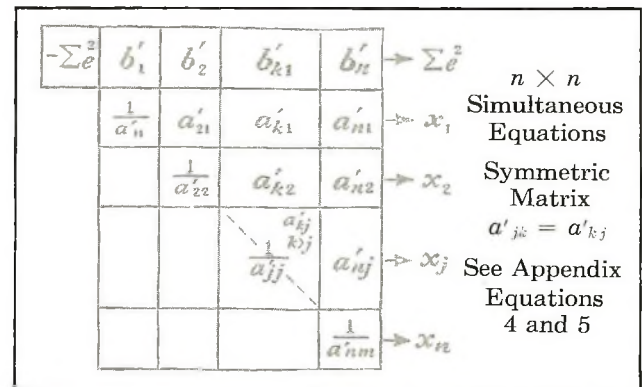 -Σe² b′₁ b′₂ b′ₖ₁ b′ₙ → Σe²
1/a′₁₁ a′₂₁ a′ₖ₁ a′ₙ₁ → x₁
1/a′₂₂ a′ₖ₂ a′ₙ₂ → x₂
a′ₖⱼ
k>j
1/a′ⱼⱼ a′ₙⱼ → xⱼ
1/a′ₙₘ → xₙ
n × n
Simultaneous
Equations
Symmetric
Matrix
a′ⱼₖ = a′ₖⱼ
See Appendix
Equations
4 and 5